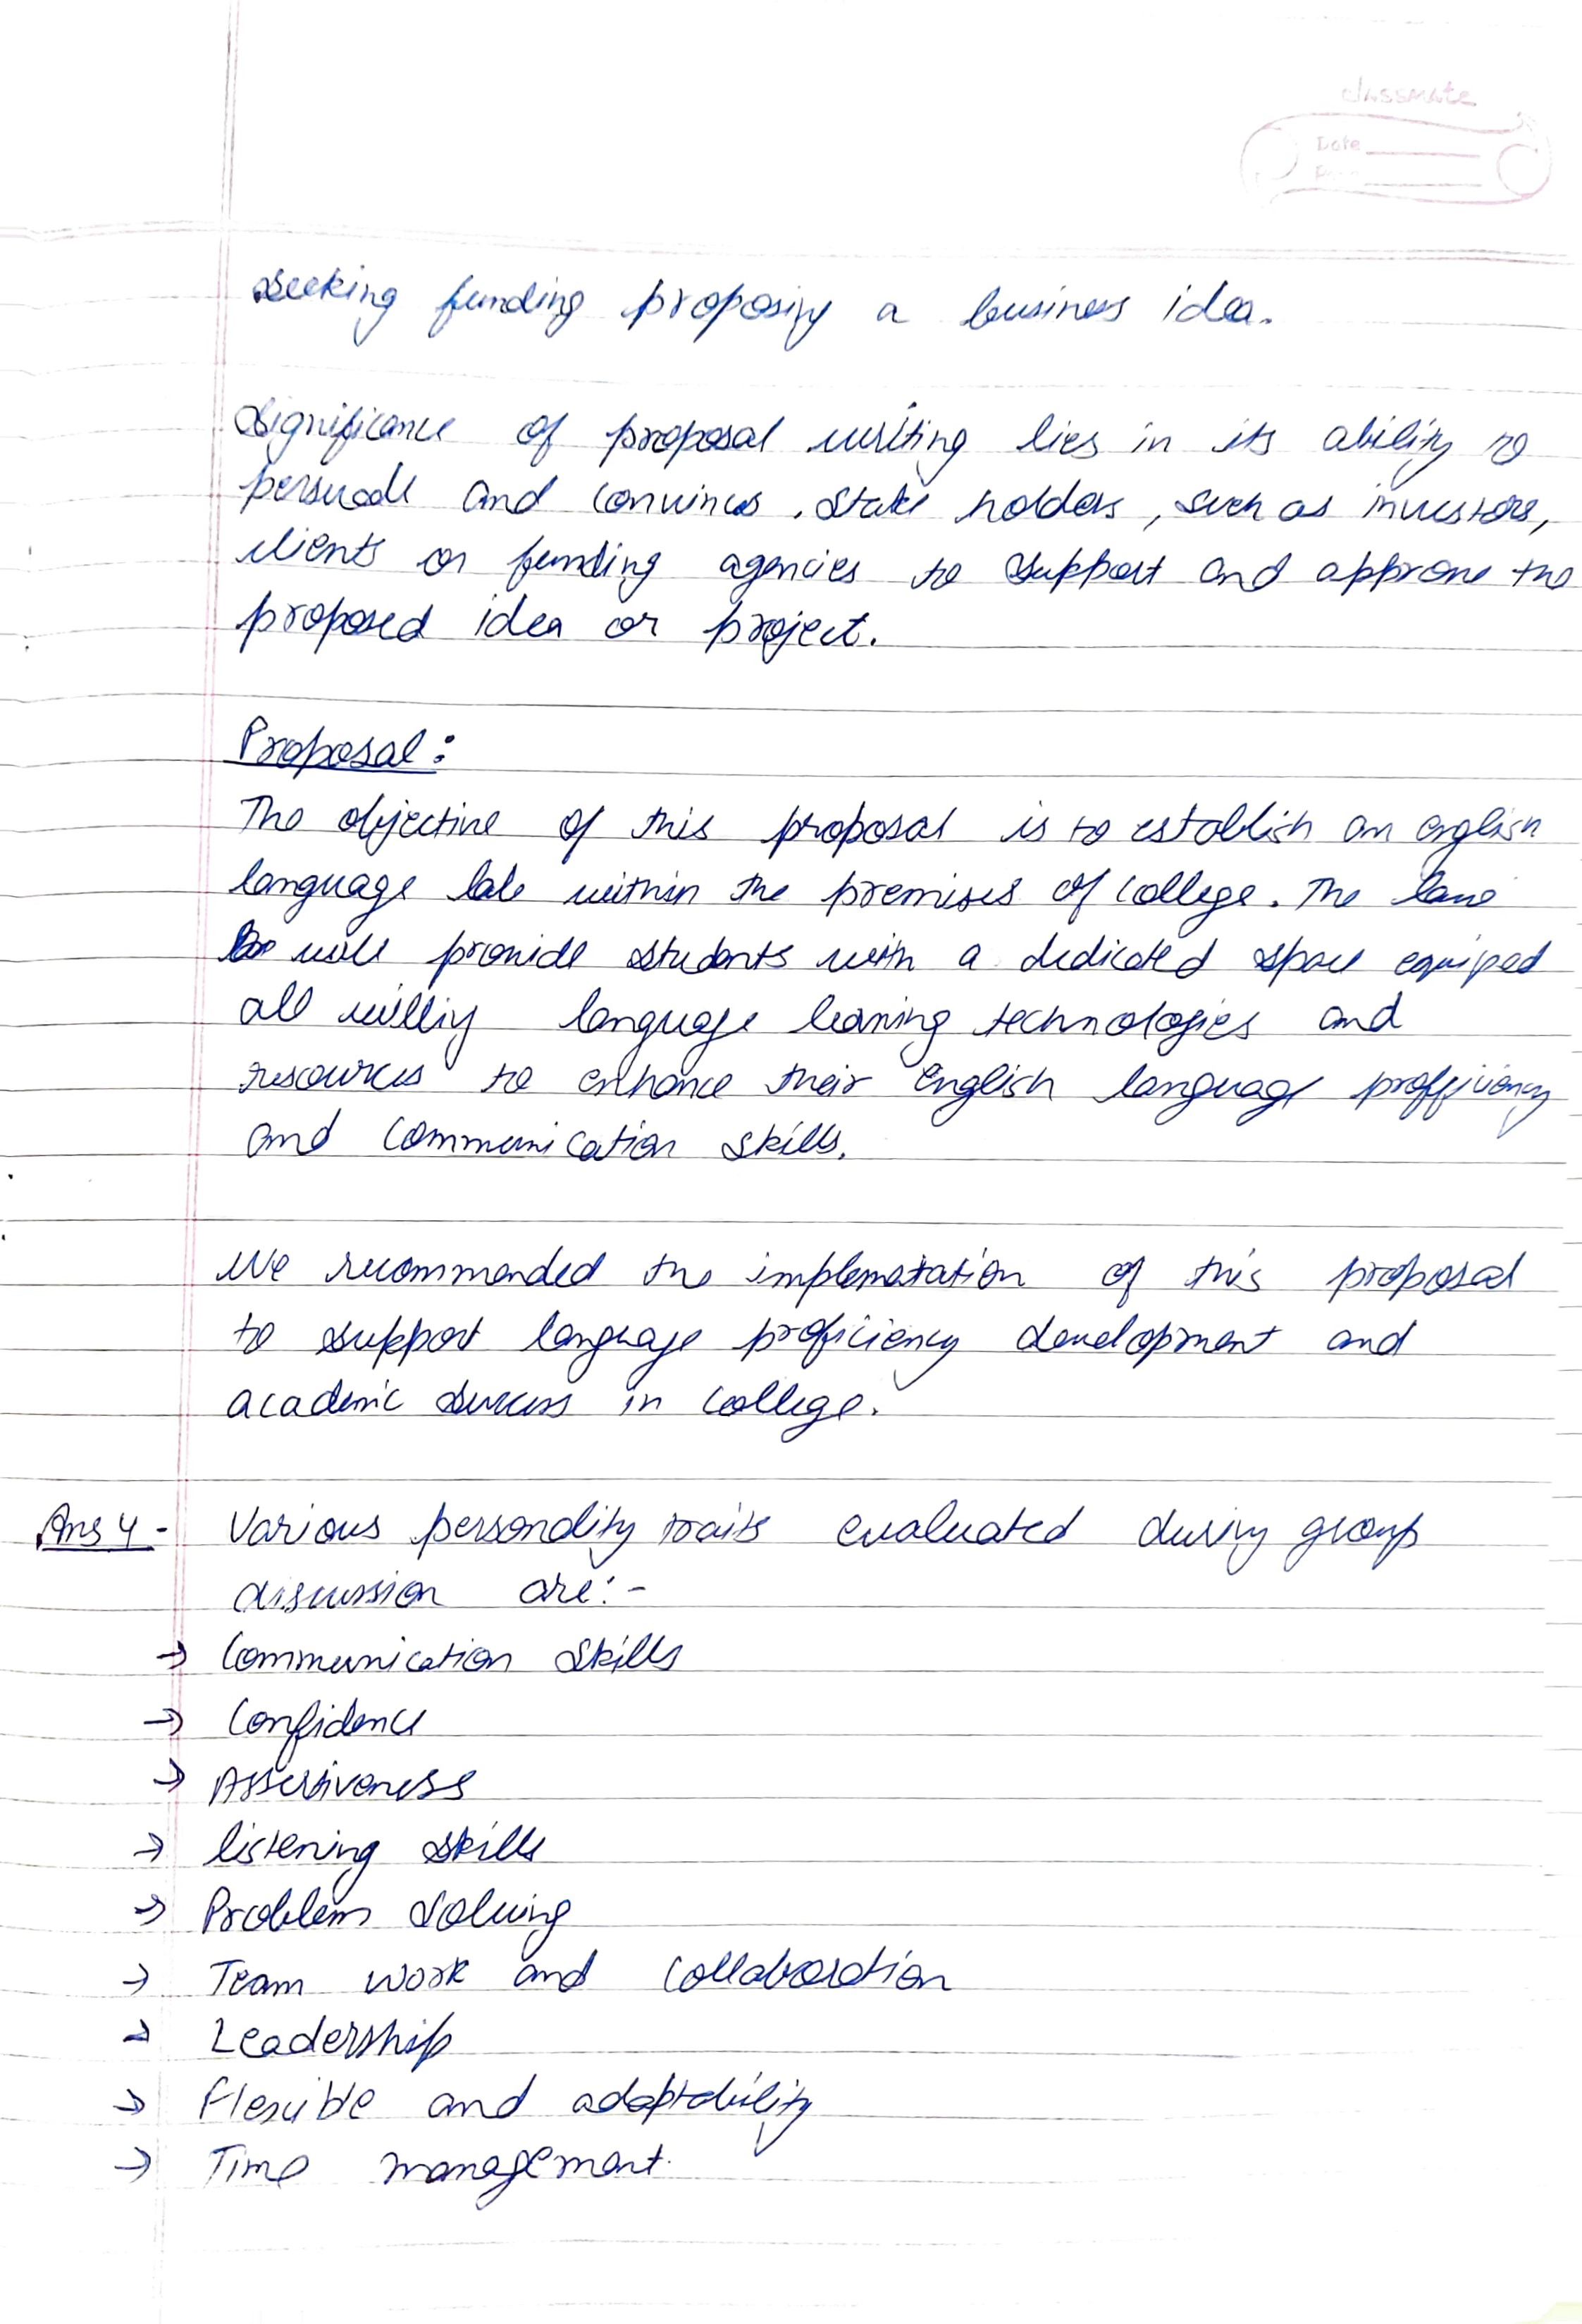 classmate
Date
seeking funding proposing a business idea.
Significance of proposal writing lies in its ability to
persuade and convinces, stake holders, such as investors,
clients or funding agencies to support and approve the
proposed idea or project.
Proposal:
The objective of this proposal is to establish an english
language lab within the premises of college. The
will provide students with a dedicated space equiped
all language learning technologies and
resources to enhance their English language profficiency
and communication skills.
We recommended the implematation of this proposal
to support language proficiency development and
academic success in college.
Ans 4 - Various personality traits evaluated during group
discussion are:-
→ Communication skills
→ Confidence
→ Assertiveness
→ listening skills
→ Problem solving
→ Team work and collaboration
→ Leadership
→ flexible and adaptability
→ Time management.